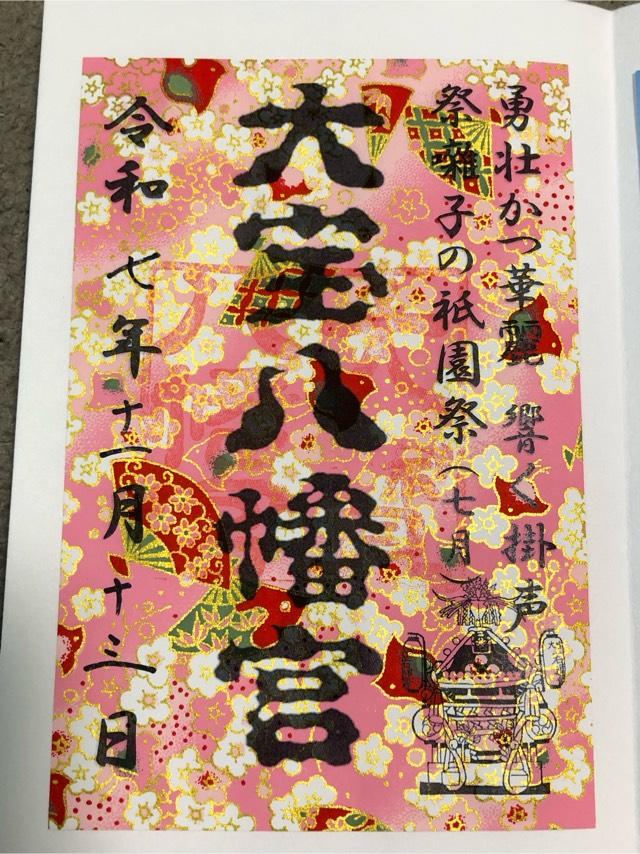 勇壮かつ華麗 響く掛声
祭囃子の祇園祭(七月)
大宝八幡宮
令和七年十一月十三日